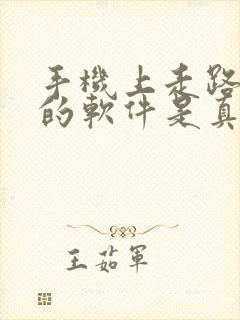 手機上走路
的軟件是真
王茹軍